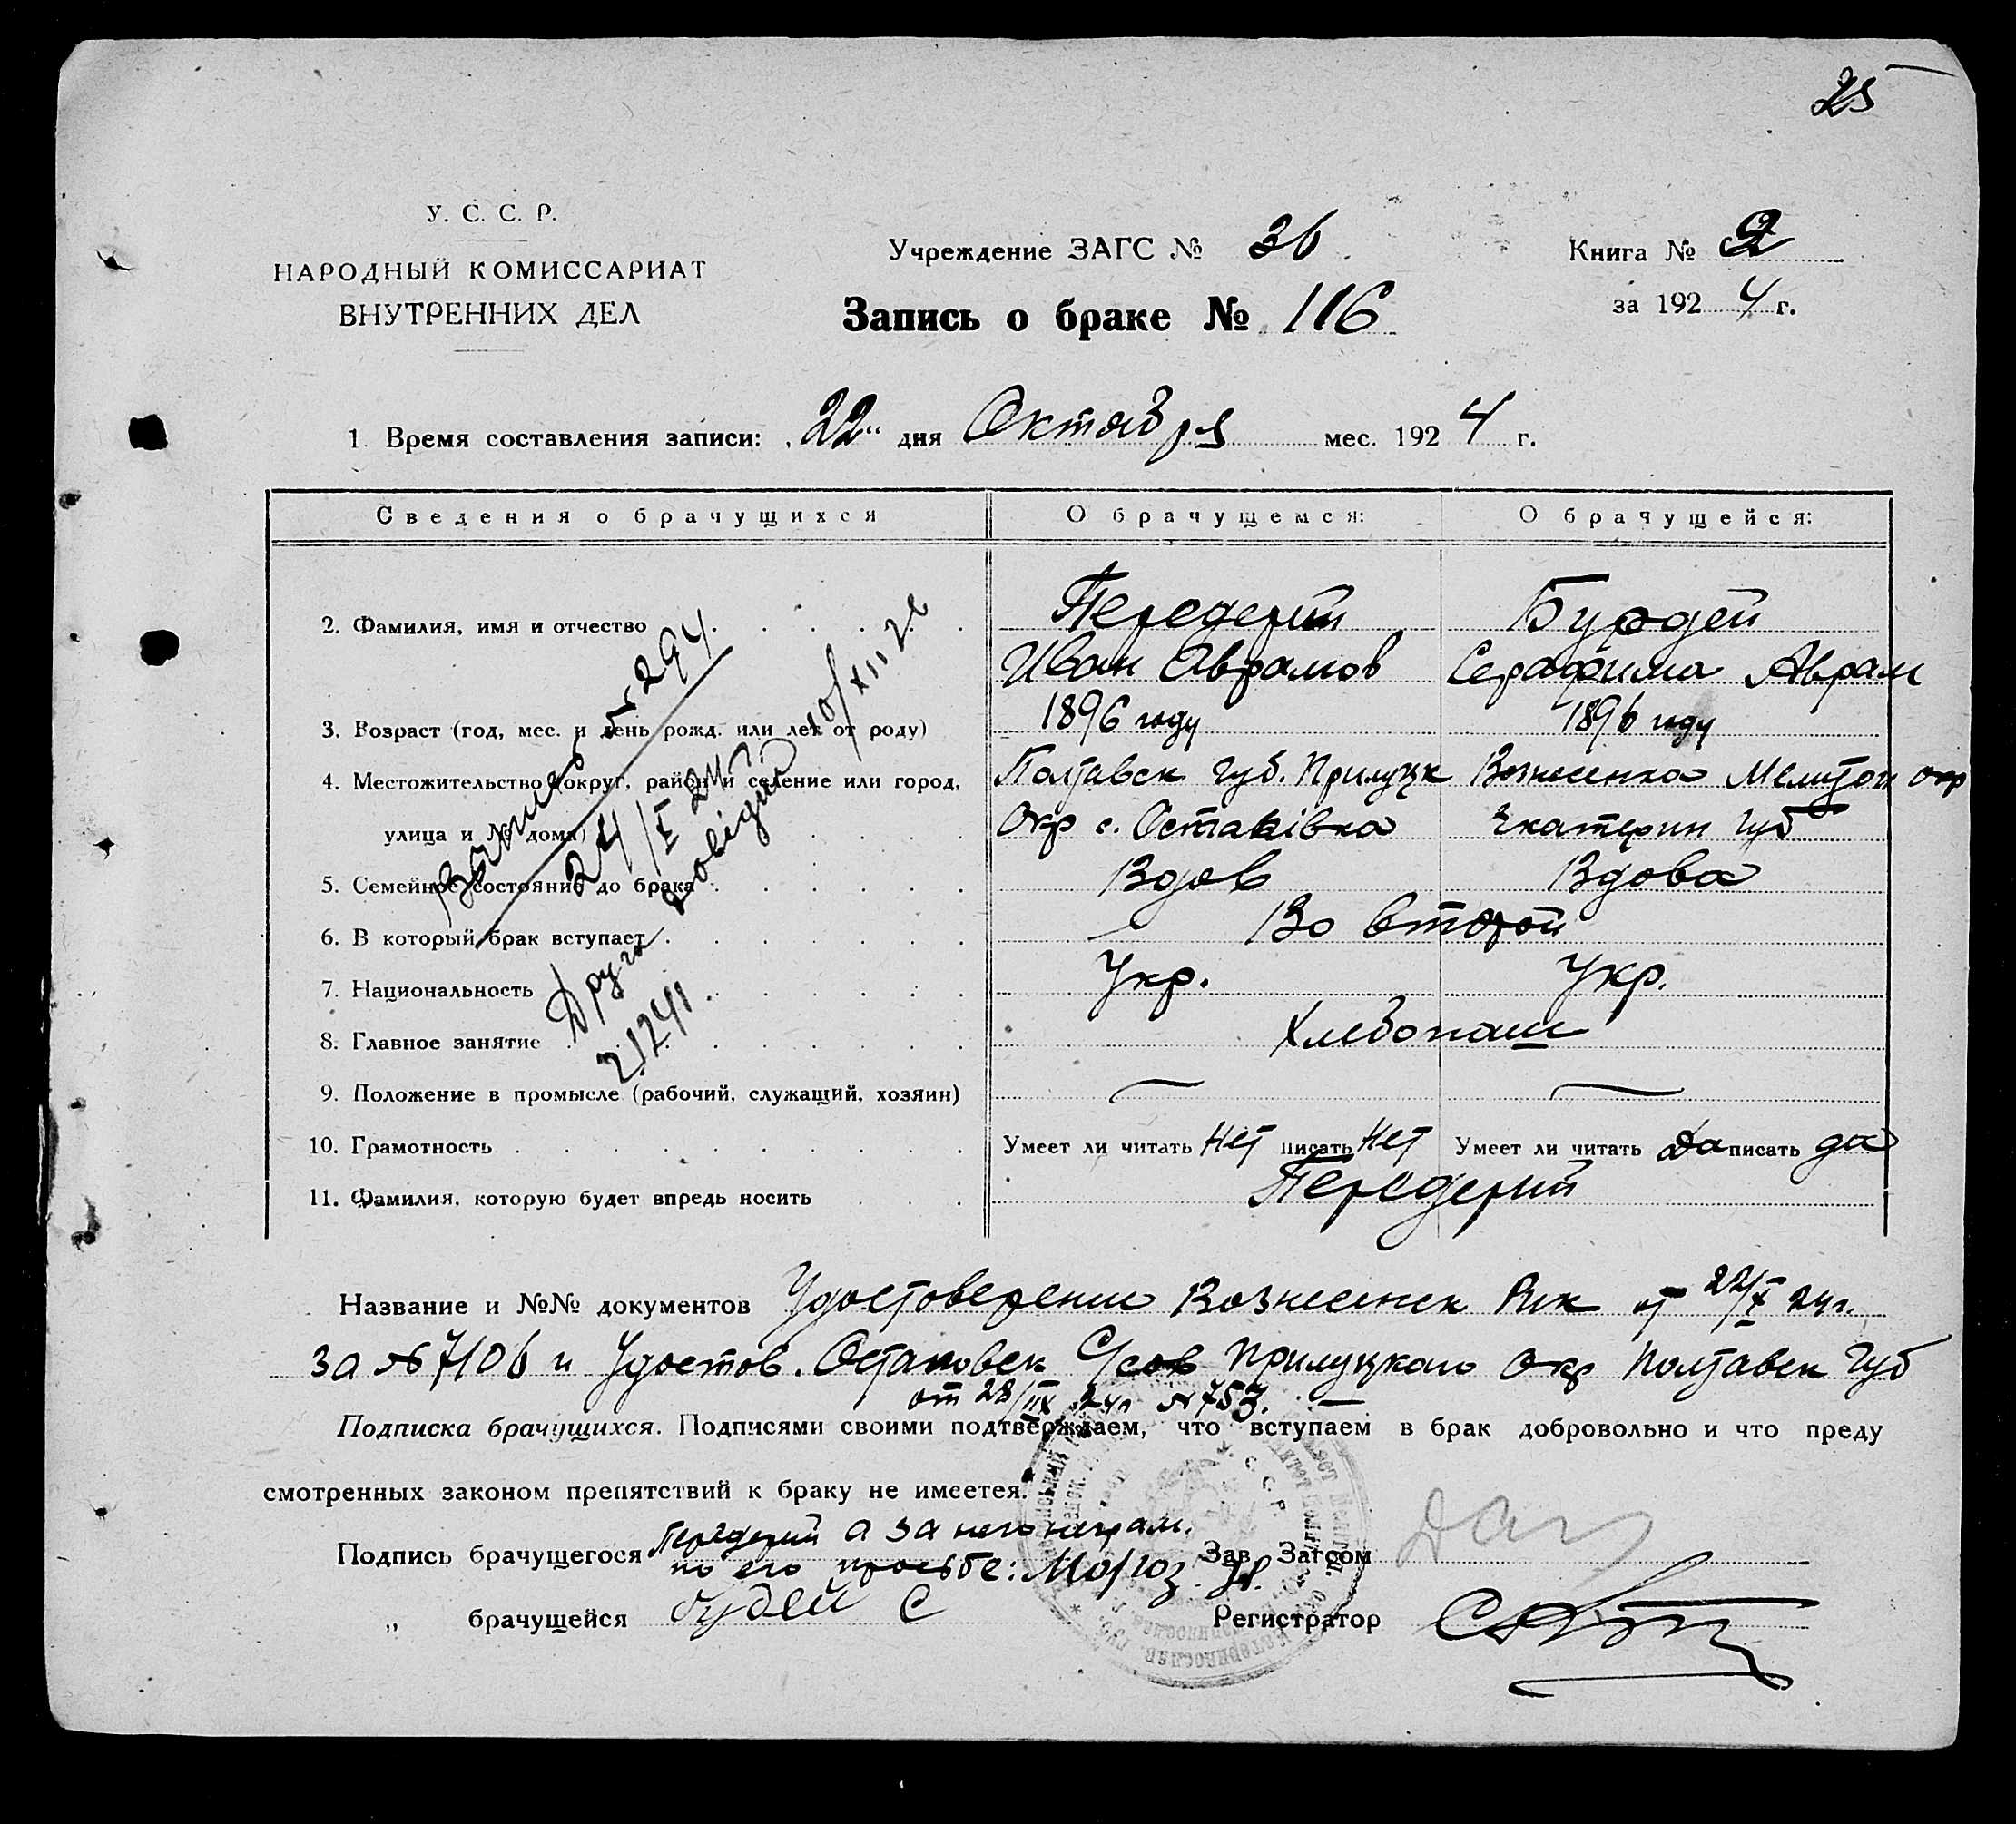 25
У. С. С. Р.
НАРОДНЫЙ КОМИССАРИАТ
ВНУТРЕННИХ ДЕЛ
Учреждение ЗАГС № 36
Запись о браке № 116
Книга № 2
за 1924 г.
1. Время составления записи: „22“ дня Октября мес. 1924 г.
Сведения о брачущихся О брачущемся: О брачущейся:
2. Фамилия, имя и отчество Передерий Бурдей
Иван Аврамов Серафима Аврам
3. Возраст (год, мес. и день рожд. или лет от роду) 1896 году 1896 году
4. Местожительство (округ, район и селение или город, Полтавск губ. Прилуцк Вознесенка Мелитоп окр
улица и № дома) Окр с. Остаківка Екатерин губ
5. Семейное состояние до брака Вдов Вдова
6. В который брак вступает Во второй
7. Национальность Укр. Укр.
8. Главное занятие Хлебопаш
9. Положение в промысле (рабочий, служащий, хозяин) — —
10. Грамотность Умеет ли читать Нет писать Нет Умеет ли читать Да писать да
11. Фамилия, которую будет впредь носить Передерий
№ 294
24/X 24 г.
10/XII 24
Друга
Название и №№ документов Удостоверение Вознесенск Рик от 22/X 24 г.
за № 7106 и Удостов. Остановск С/сов Прилуцкого Окр Полтавск Губ
от 28/IX 24 г № 753.
Подписка брачущихся. Подписями своими подтверждаем, что вступаем в брак добровольно и что преду
смотренных законом препятствий к браку не имеется.
Подпись брачущегося Передерий а за него неграм.
по его просьбе: Мороз. Зав. Загсом
„ брачущейся Будей С Регистратор